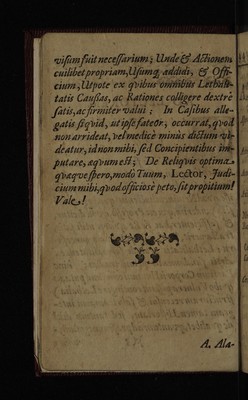 visum fuit necessarium; Unde & Actionem
cuilibet propriam, Usumq; addidi, & Offi-
cium, Utpote ex qvibus omnibus Lethali-
tatis Caussas, ac Rationes colligere dextrè
satis, ac firmiter valui; In Casibus alle-
gatis siqvid, ut ipse fateor, occurrat, qvod
non arrideat, vel medicè minùs dictum vi-
deatur, id non mihi, sed Concipientibus im-
putare, aqvum est; De Reliqvis optima
qvaqve spero, modò Tuum, Lector, Judi-
cium mihi, qvod officiosè peto, sit propitium!
Vale!
A. Ala-